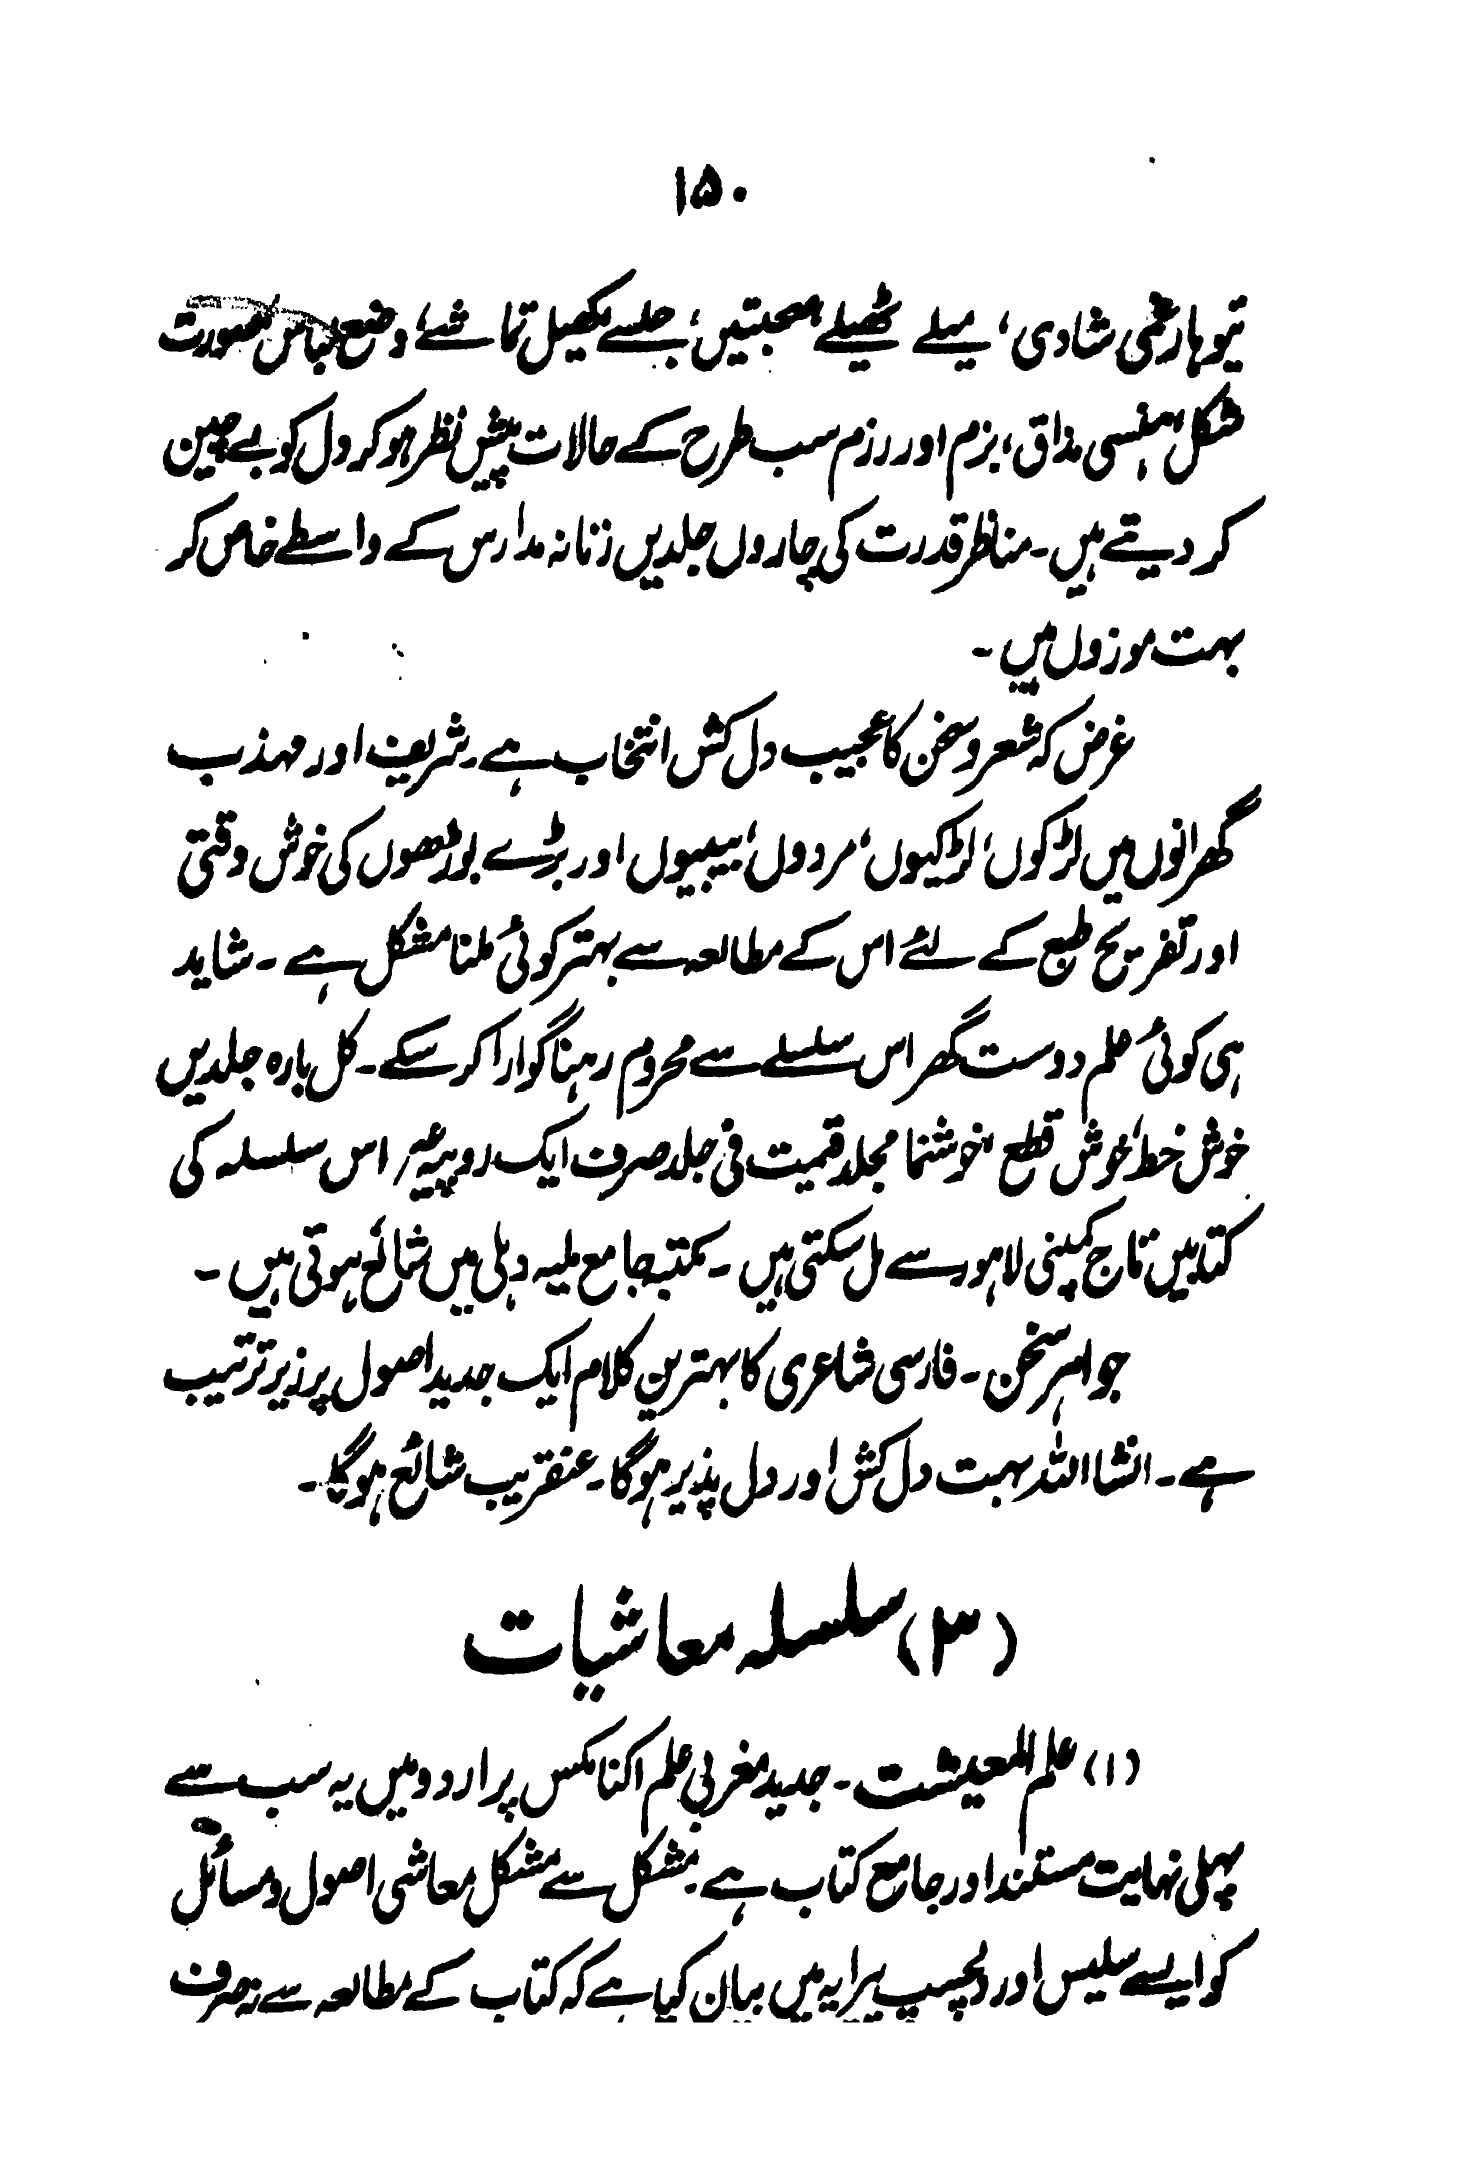 ۱۵۰
تیوہار غمی شادی، میلے ٹھیلے، صحبتیں، جلسے کھیل تماشے، وضع لباس صورت
شکل، ہنسی مذاق، بزم اور رزم سب طرح کے حالات پیش نظر ہو کر دل کو بے چین
کر دیتے ہیں۔ مناظر قدرت کی چاروں جلدیں زنانہ مدارس کے واسطے خاص کر
بہت موزوں ہیں۔
غرض کہ شعر و سخن کا عجیب دل کش انتخاب ہے۔ شریف اور مہذب
گھرانوں میں لڑکوں، لڑکیوں، مردوں، بیبیوں اور بڑے بوڑھوں کی خوش وقتی
اور تفریح طبع کے لئے اس کے مطالعہ سے بہتر کوئی ملنا مشکل ہے۔ شاید
ہی کوئی علم دوست گھر اس سلسلے سے محروم رہنا گوارا کر سکے۔ کل بارہ جلدیں
خوش خط، خوش قطع، خوشنما مجلد قیمت فی جلد صرف ایک روپیہ عہ اس سلسلہ کی
کتابیں تاج کمپنی لاہور سے مل سکتی ہیں۔ مکتبہ جامع ملیہ دہلی میں شائع ہوتی ہیں۔
جواہر سخن۔ فارسی شاعری کا بہترین کلام ایک جدید اصول پر زیر ترتیب
ہے۔ انشا اللہ بہت دل کش اور دل پذیر ہوگا۔ عنقریب شائع ہوگا۔
(۳) سلسلہ معاشیات
(۱) علم المعیشت۔ جدید مغربی علم اکنامکس پر اردو میں یہ سب سے
پہلی نہایت مستند اور جامع کتاب ہے۔ مشکل سے مشکل معاشی اصول و مسائل
کو ایسے سلیس اور دلچسپ پیرایہ میں بیان کیا ہے کہ کتاب کے مطالعہ سے نہ صرف